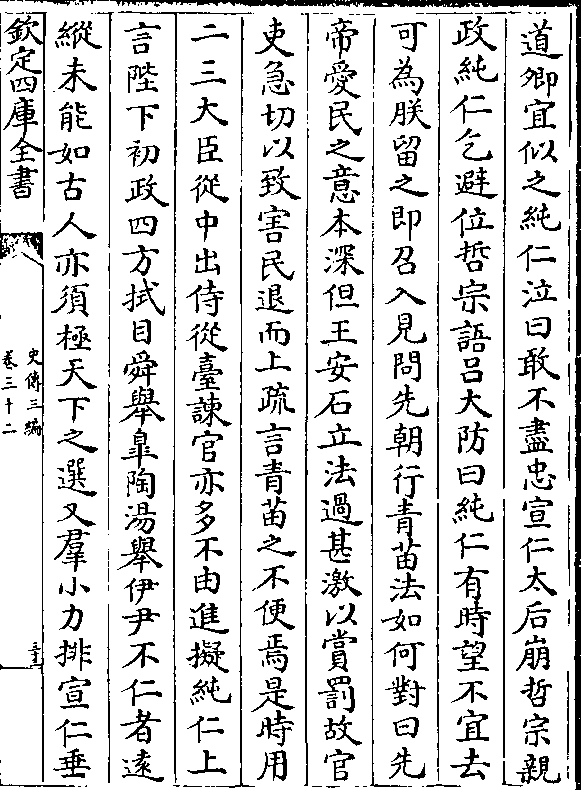 道卿宜似之純仁泣曰敢不盡忠宣仁太后崩哲宗親
政純仁乞避位哲宗語呂大防曰純仁有時望不宜去
可為朕留之即召入見問先朝行青苗法如何對曰先
帝愛民之意本深但王安石立法過甚激以賞罰故官
吏急切以致害民退而上疏言青苗之不便焉是時用
二三大臣從中出侍從臺諫官亦多不由進擬純仁上
言陛下初政四方拭目舜舉臯陶湯舉伊尹不仁者遠
縱未能如古人亦須極天下之選又羣小力排宣仁垂
欽定四庫全書
史傳三編
卷三十二